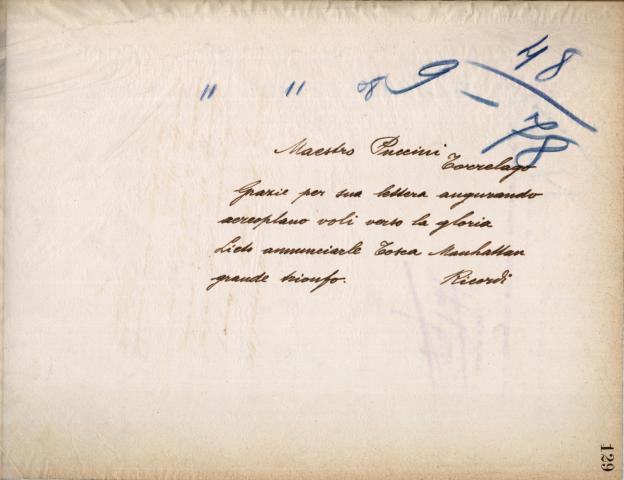 " " 08 9 - 48
78
Maestro Puccini
Torrelago
Grazie per sua lettera augurando
aereoplano voli verso la gloria
Lieto annunciarle Tosca Manhattan
grande trionfo. Ricordi
129